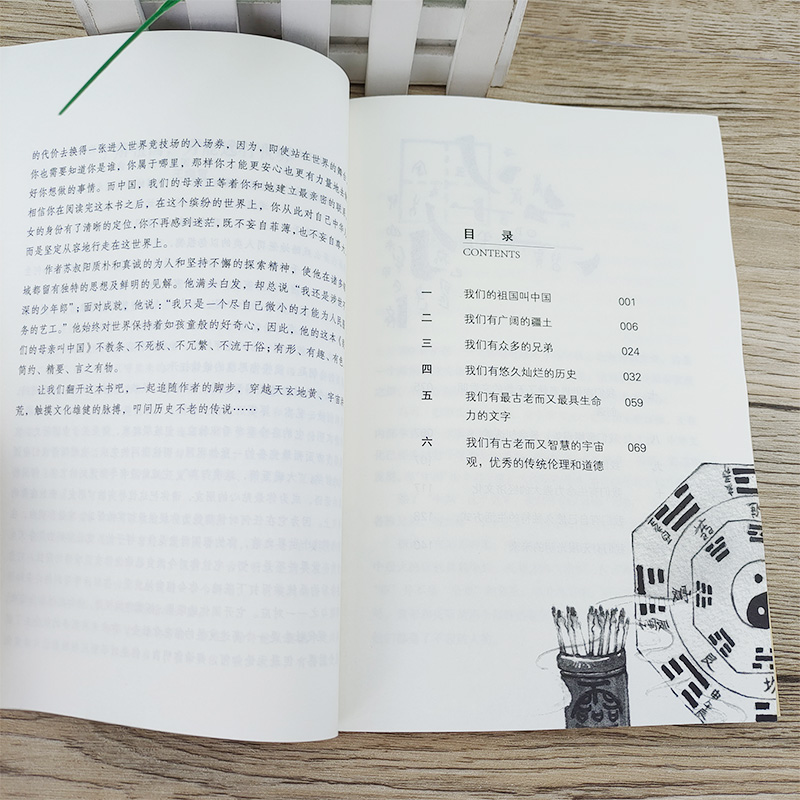 的代价去换得一张进入世界竞技场的入场券，因为，即使站在世界的舞
你也需要知道你是谁，你属于哪里，那样你才能更安心也更有力量地去
好你想做的事情。而中国，我们的母亲正等着你和她建立最亲密的联
相信你在阅读完这本书之后，在这个缤纷的世界上，你从此对自己中华
女的身份有了清晰的定位，你不再感到迷茫，既不妄自菲薄，也不妄自尊
而是坚定从容地行走在这世界上。
作者苏叔阳质朴和真诚的为人和坚持不懈的探索精神，使他在诸多
域都留有独特的思想及鲜明的见解。他满头白发，却总说“我还是涉世
深的少年郎”；面对成就，他说：“我只是一个尽自己微小的才能为人民
务的艺工。”他始终对世界保持着如孩童般的好奇心，因此，他的这本《
们的母亲叫中国》不教条、不死板、不冗繁、不流于俗；有形、有趣、有色
简约、精要、言之有物。
让我们翻开这本书吧，一起追随作者的脚步，穿越天玄地黄、宇宙
荒，触摸文化雄健的脉搏，叩问历史不老的传说……
目 录
CONTENTS
一 我们的祖国叫中国 001
二 我们有广阔的疆土 006
三 我们有众多的兄弟 024
四 我们有悠久灿烂的历史 032
五 我们有最古老而又最具生命 059
力的文字
六 我们有古老而又智慧的宇宙 069
观，优秀的传统伦理和道德